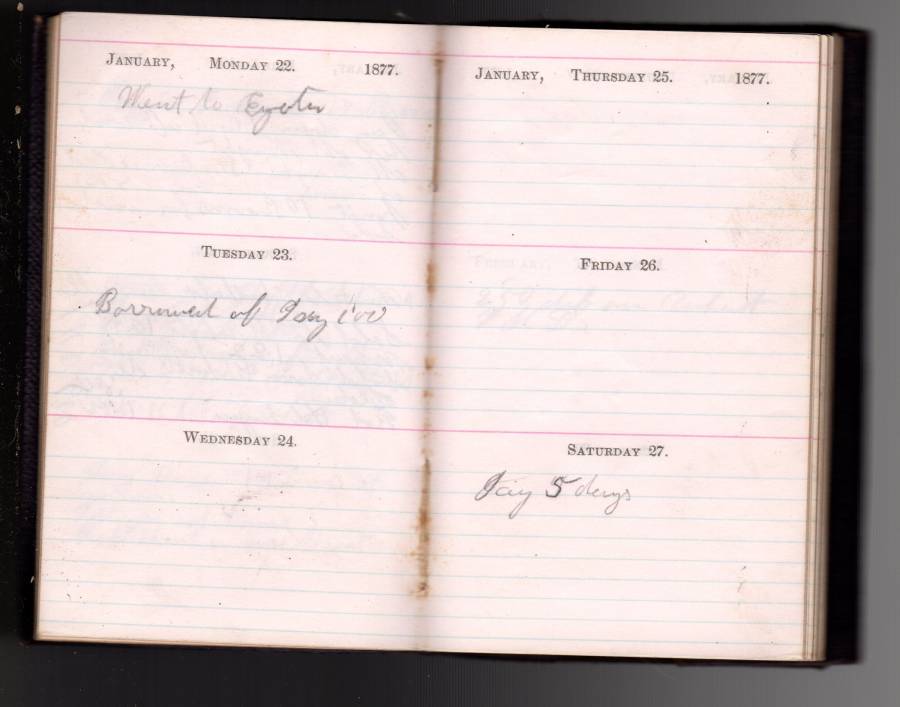 January, Monday 22. 1877.
Went to Eyota
Tuesday 23.
Borrowed of Jay 1.00
Wednesday 24.
January, Thursday 25. 1877.
Friday 26.
Saturday 27.
Jay 5 days